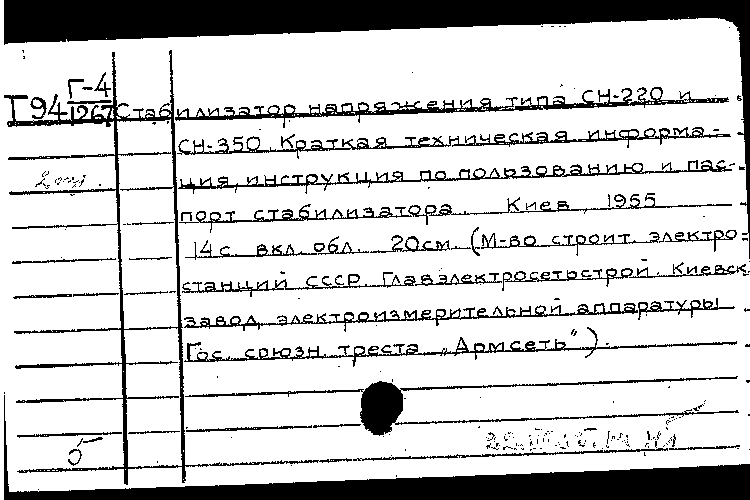 Г-4
Т94 1267 Стабилизатор напряжения типа СН-220 и
СН-350. Краткая техническая информа-
ция, инструкция по пользованию и пас-
порт стабилизатора. Киев, 1955
14с. вкл. обл. 20см. (М-во строит. электро-
станций СССР. Главэлектросетьстрой. Киевск.
завод электроизмерительной аппаратуры
Гос. союзн. треста „Армсеть").